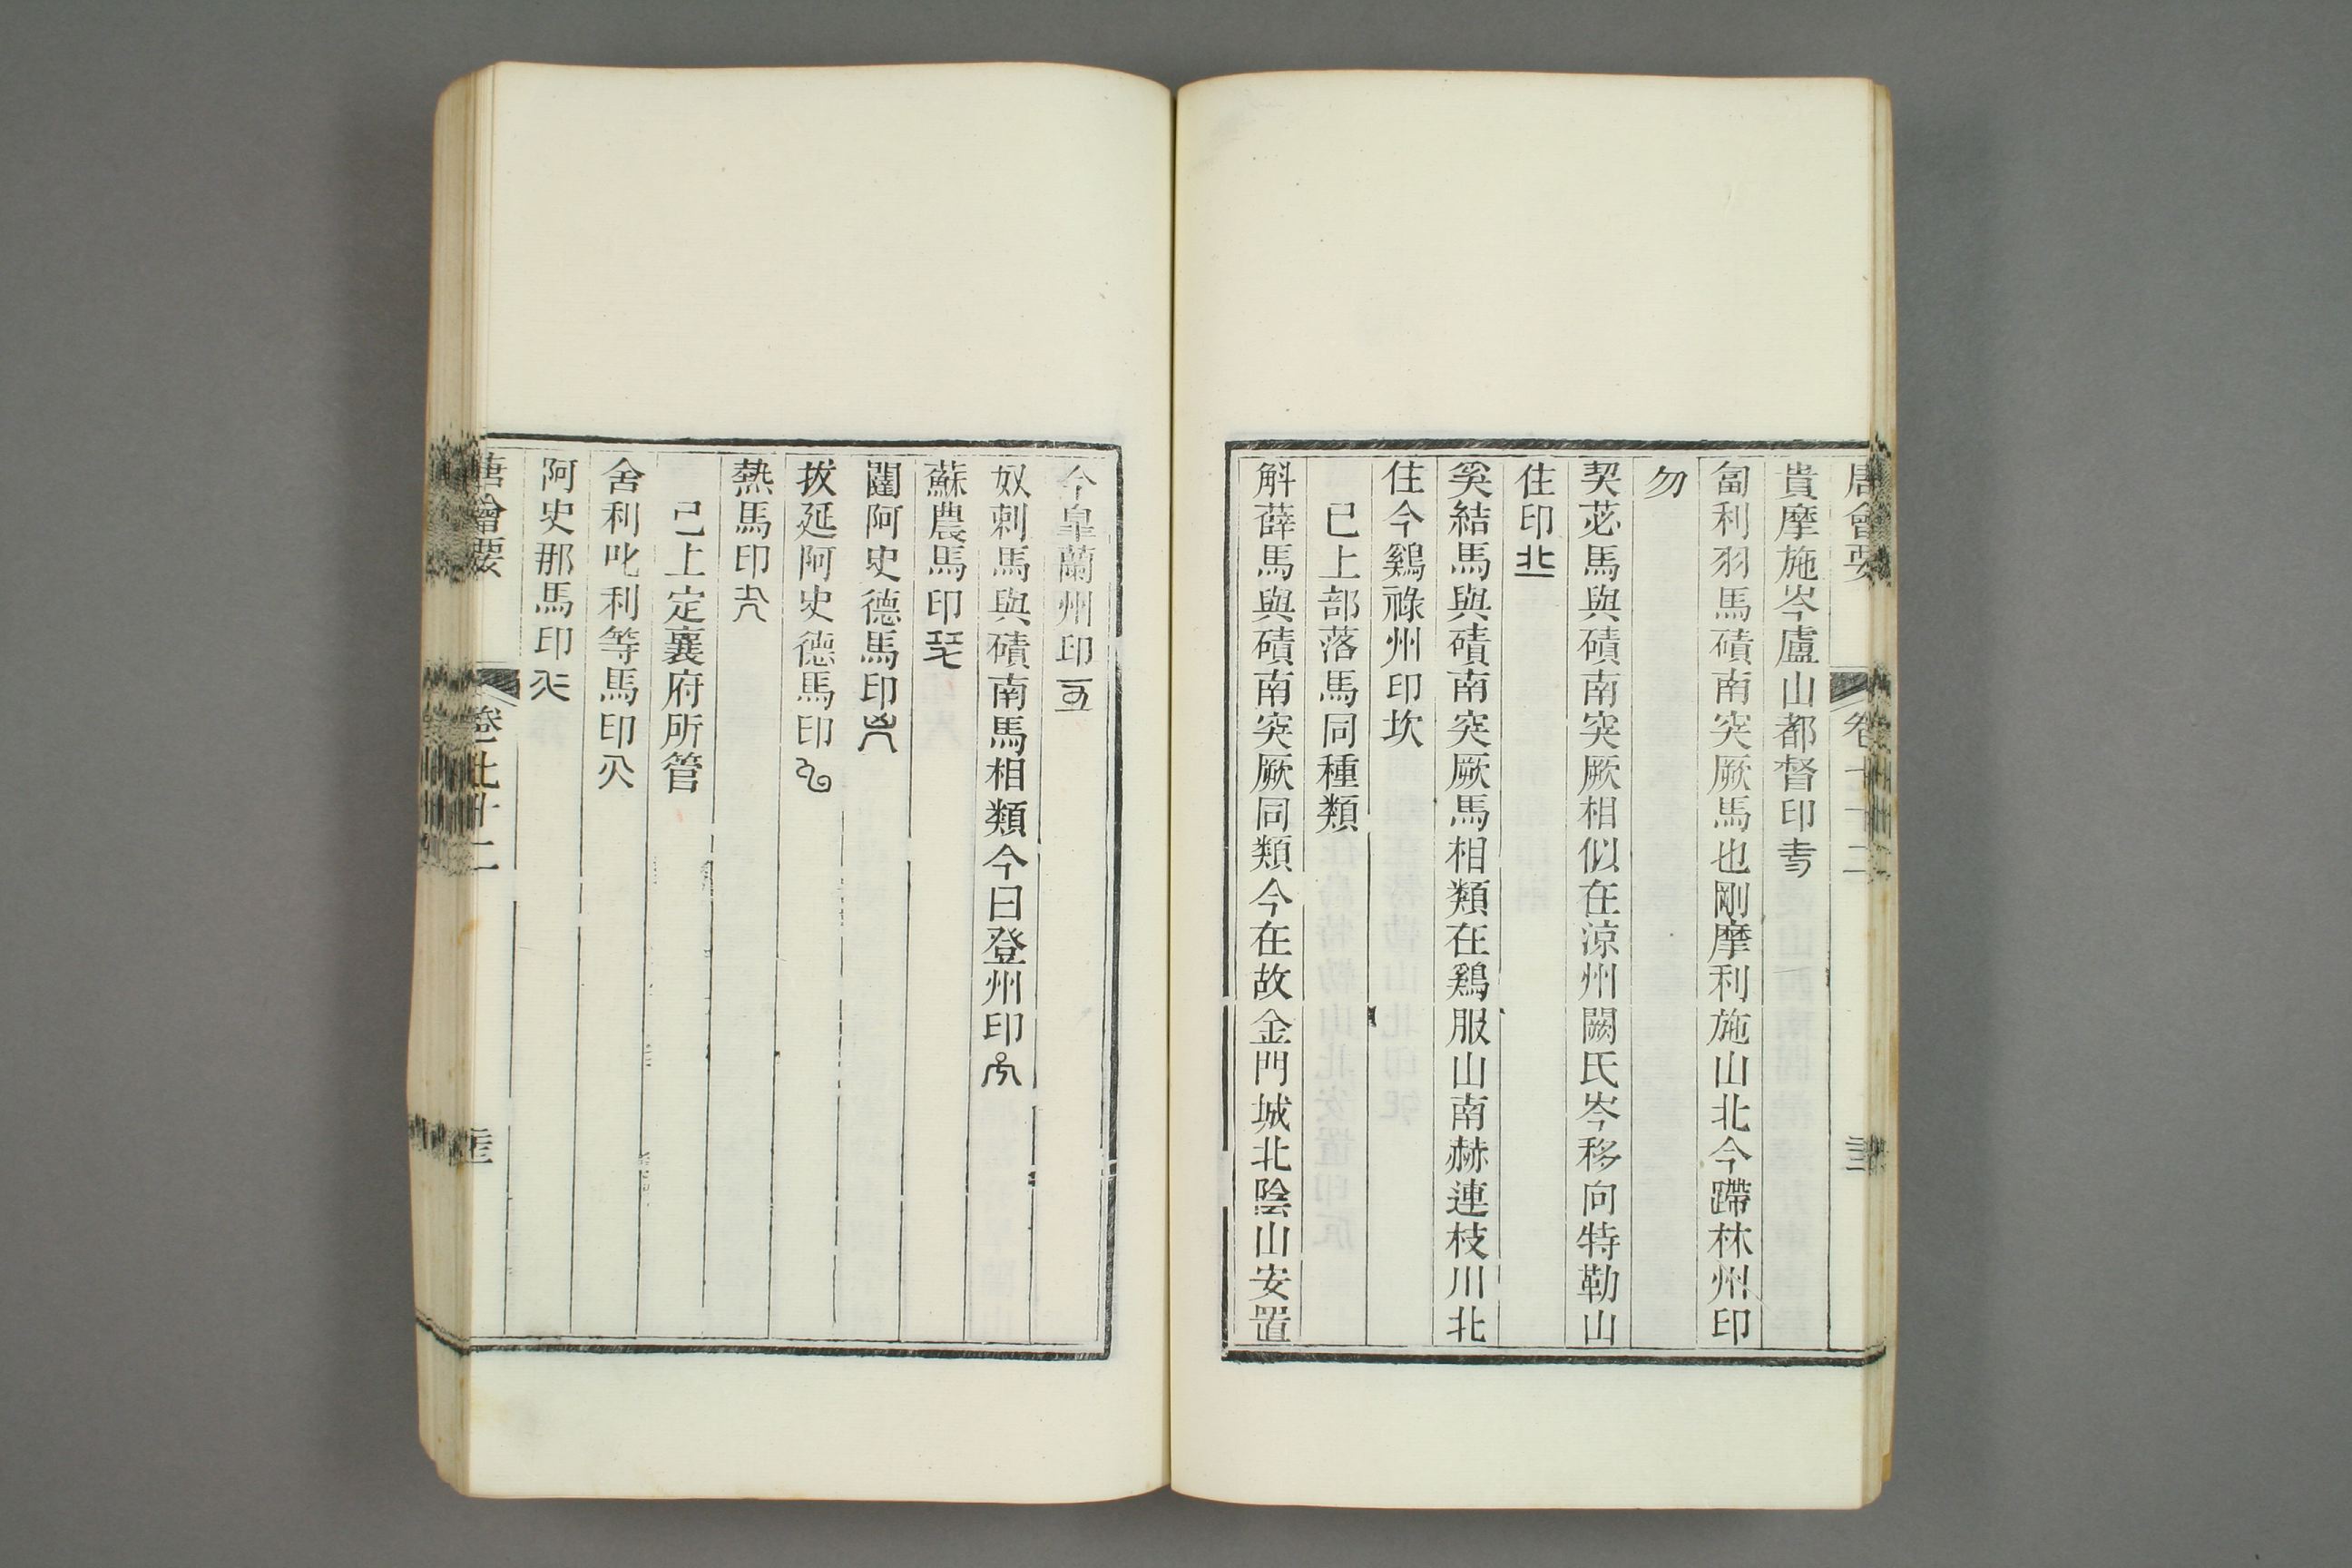 唐會要 卷七十二
貴摩施岑盧山都督印
匐利羽馬磧南突厥馬也剛摩利施山北今蹛林州印
勿
契苾馬與磧南突厥相似在涼州闕氏岑移向特勒山
住印
奚結馬與磧南突厥馬相類在鷄服山南赫連枝川北
住今鷄祿州印坎
已上部落馬同種類
斛薛馬與磧南突厥同類今在故金門城北陰山安置
今皐蘭州印
奴剌馬與磧南馬相類今曰登州印
蘇農馬印
闥阿史德馬印
拔延阿史德馬印
熱馬印
已上定襄府所管
舍利叱利等馬印
阿史那馬印
唐會要 卷七十二